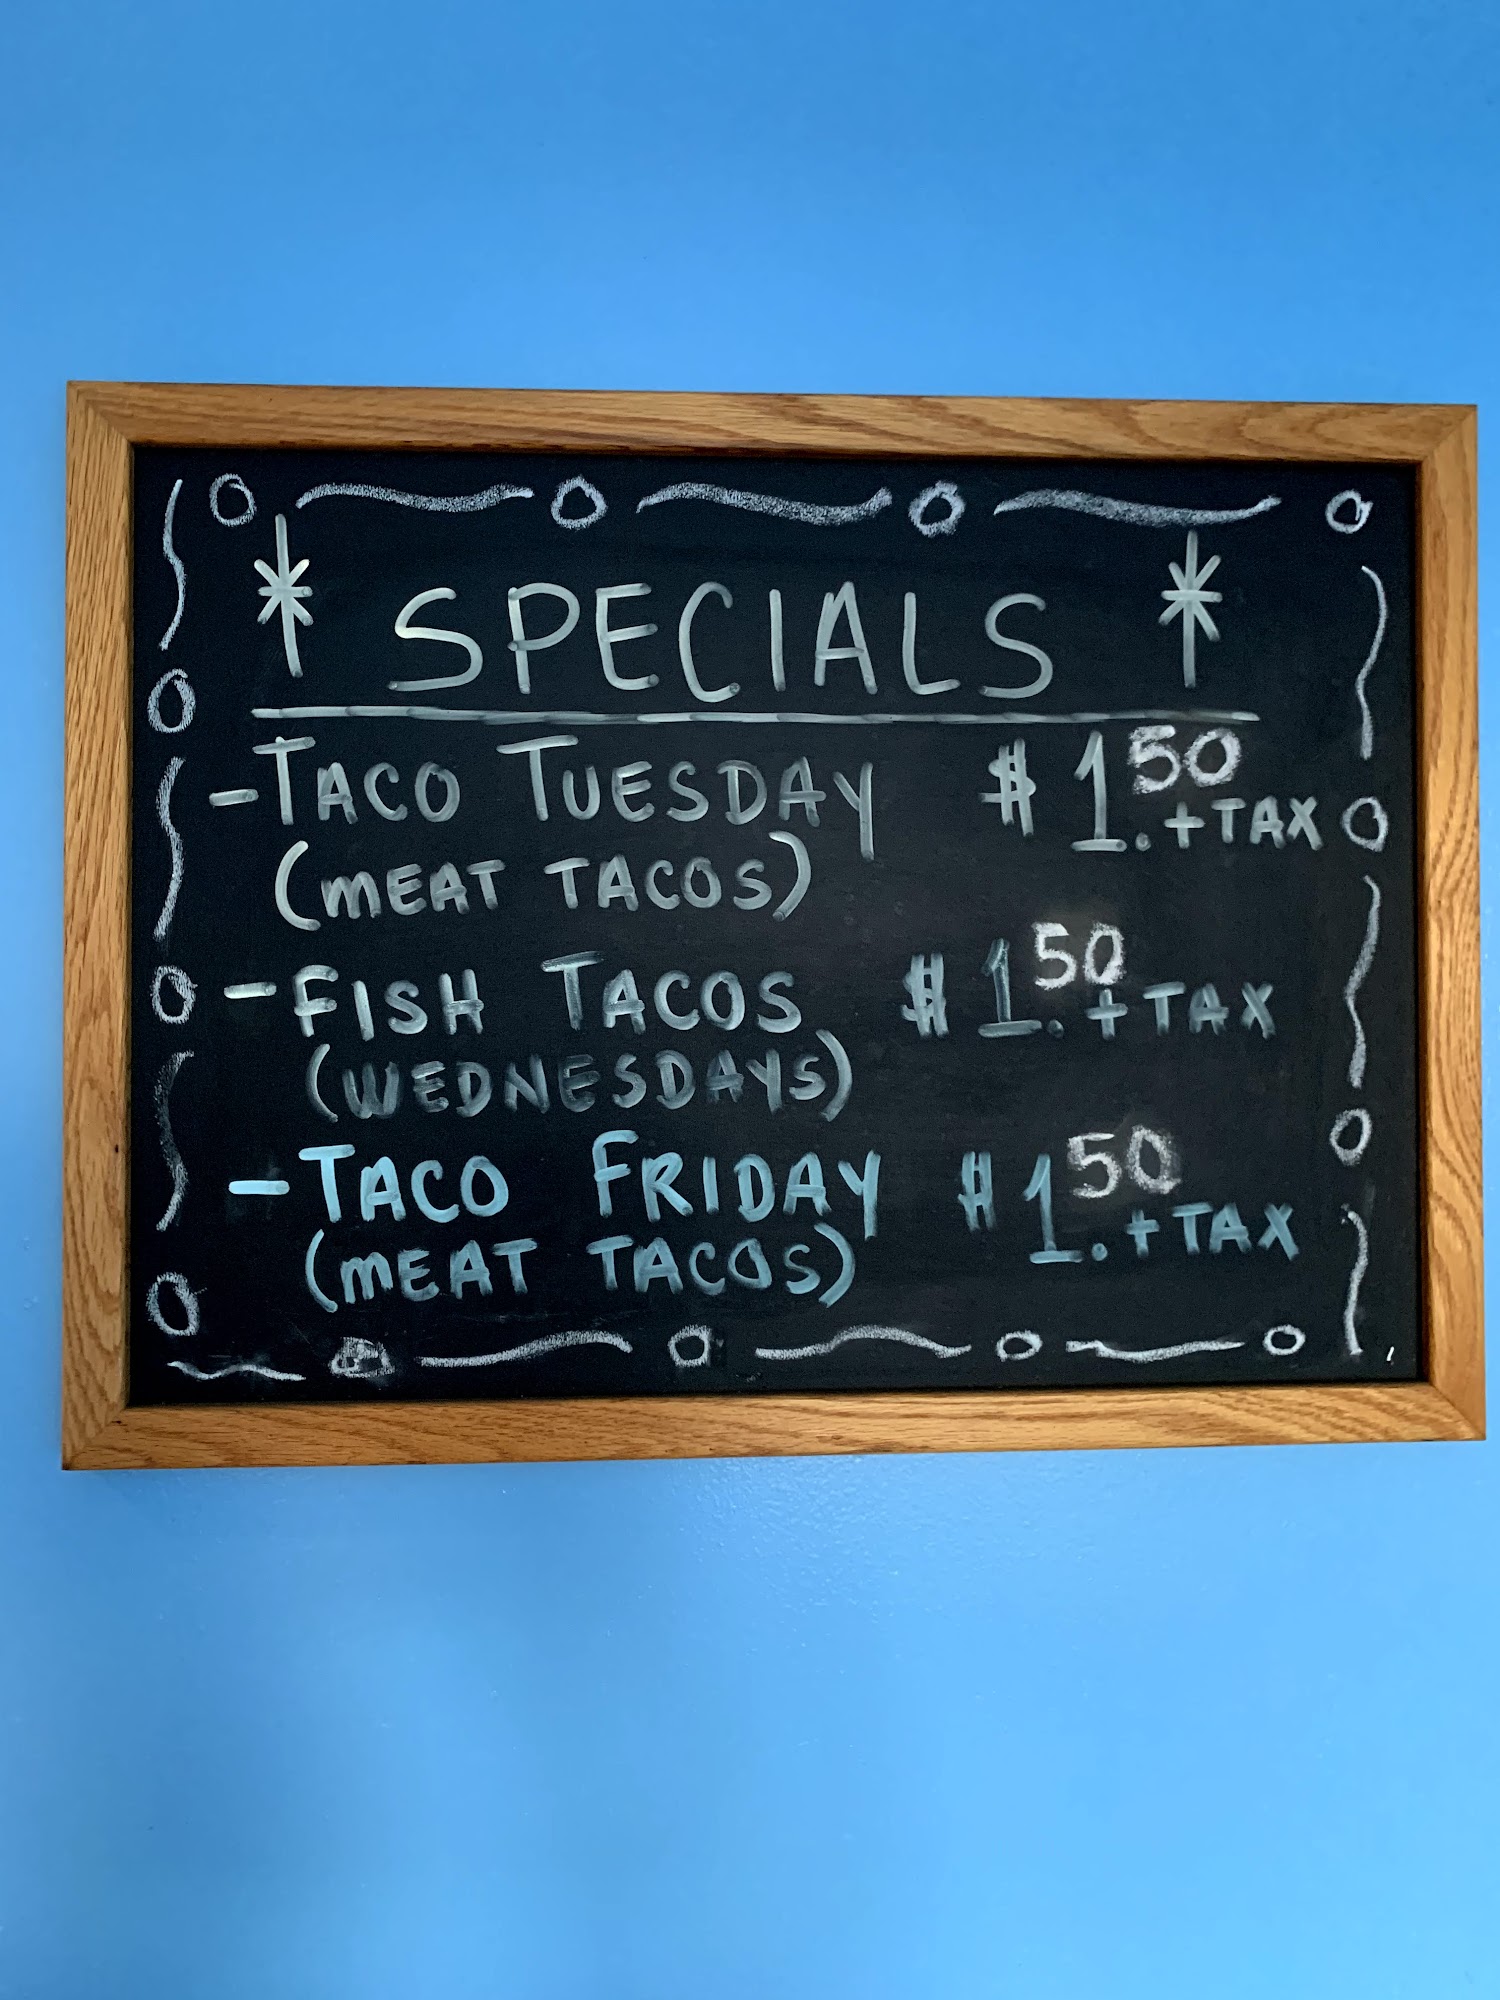 * SPECIALS *
- TACO TUESDAY $1.50 + TAX
(MEAT TACOS)
- FISH TACOS $1.50 + TAX
(WEDNESDAYS)
- TACO FRIDAY $1.50 + TAX
(MEAT TACOS)